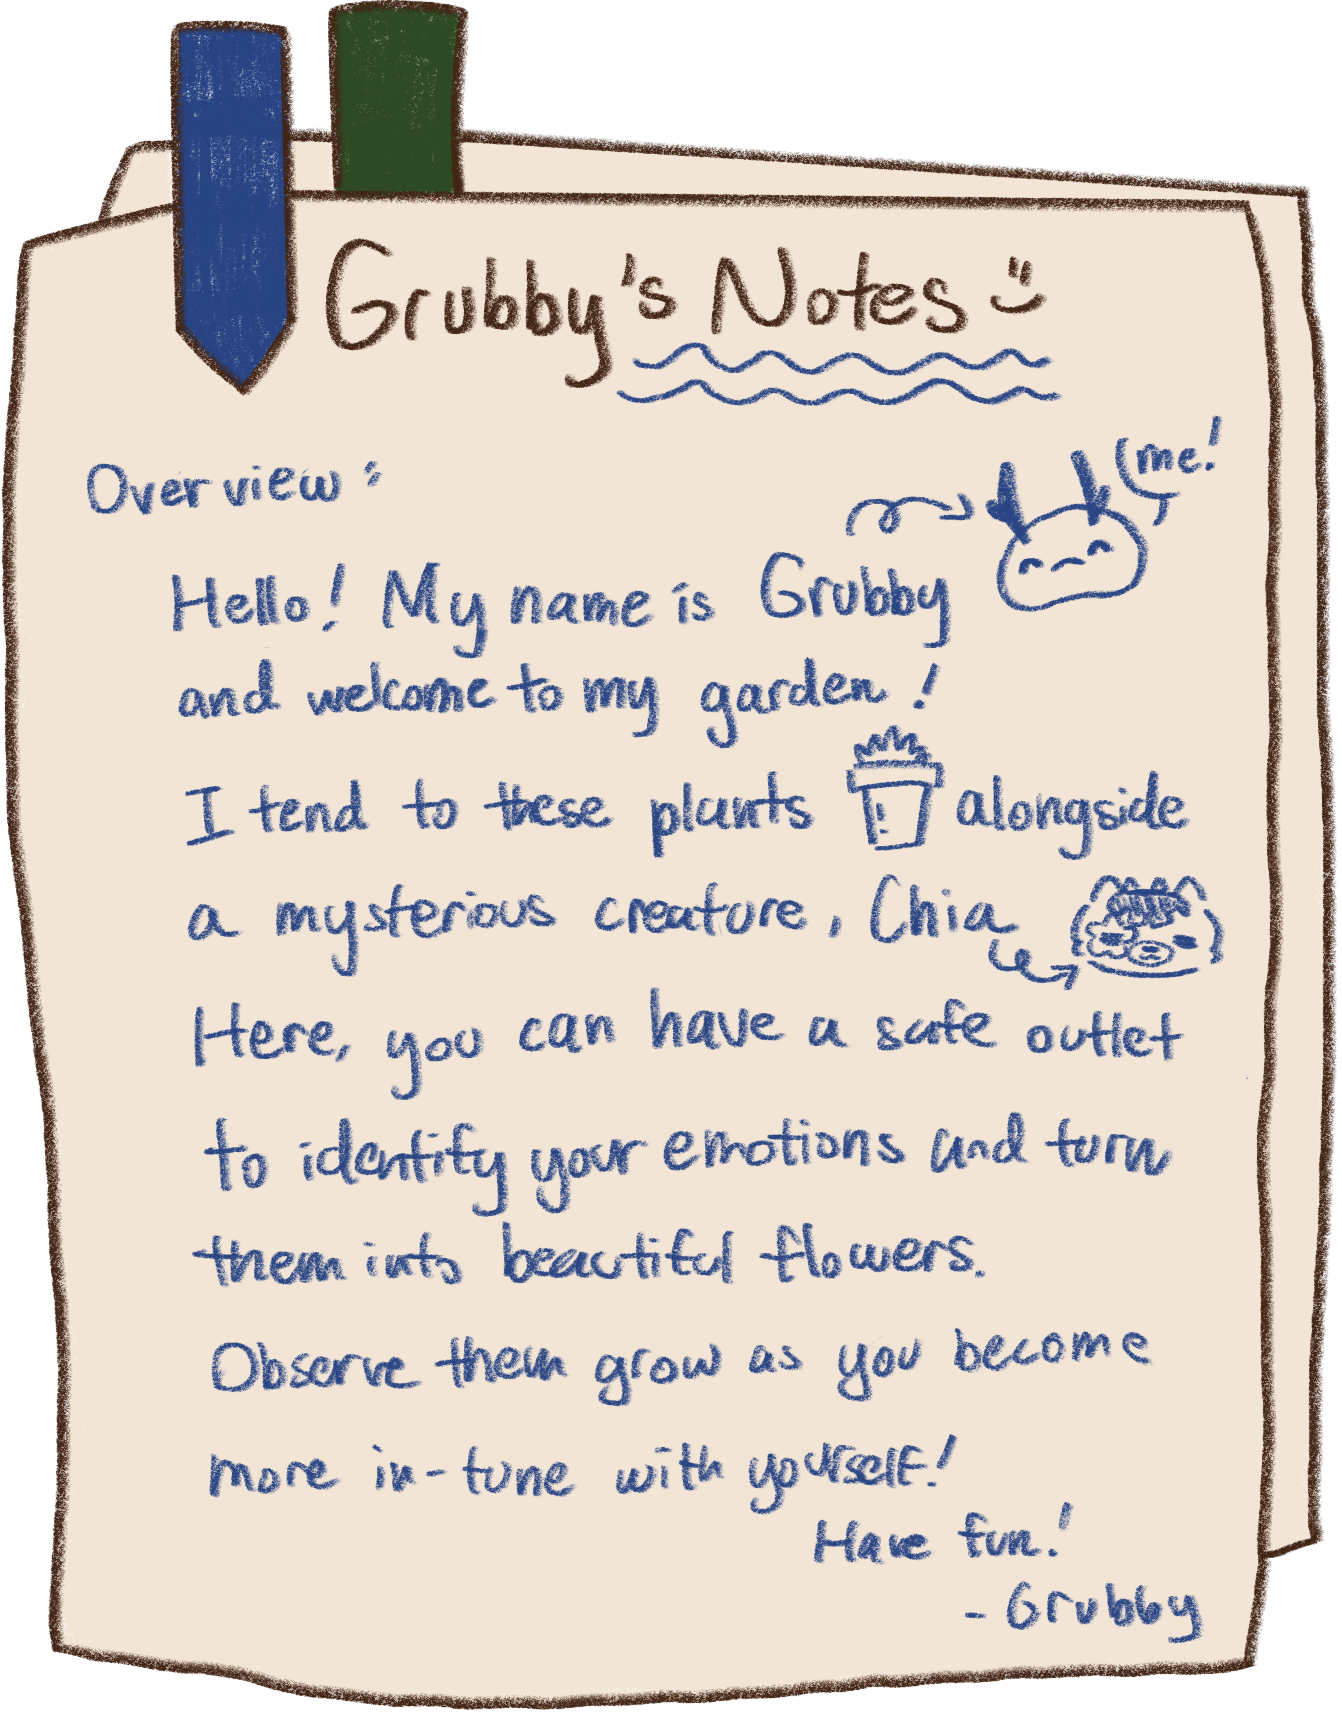 Grubby's Notes
Overview:
me!
Hello! My name is Grubby
and welcome to my garden!
I tend to these plants alongside
a mysterious creature, Chia
Here, you can have a safe outlet
to identify your emotions and turn
them into beautiful flowers.
Observe them grow as you become
more in-tune with yourself!
Have fun!
- Grubby